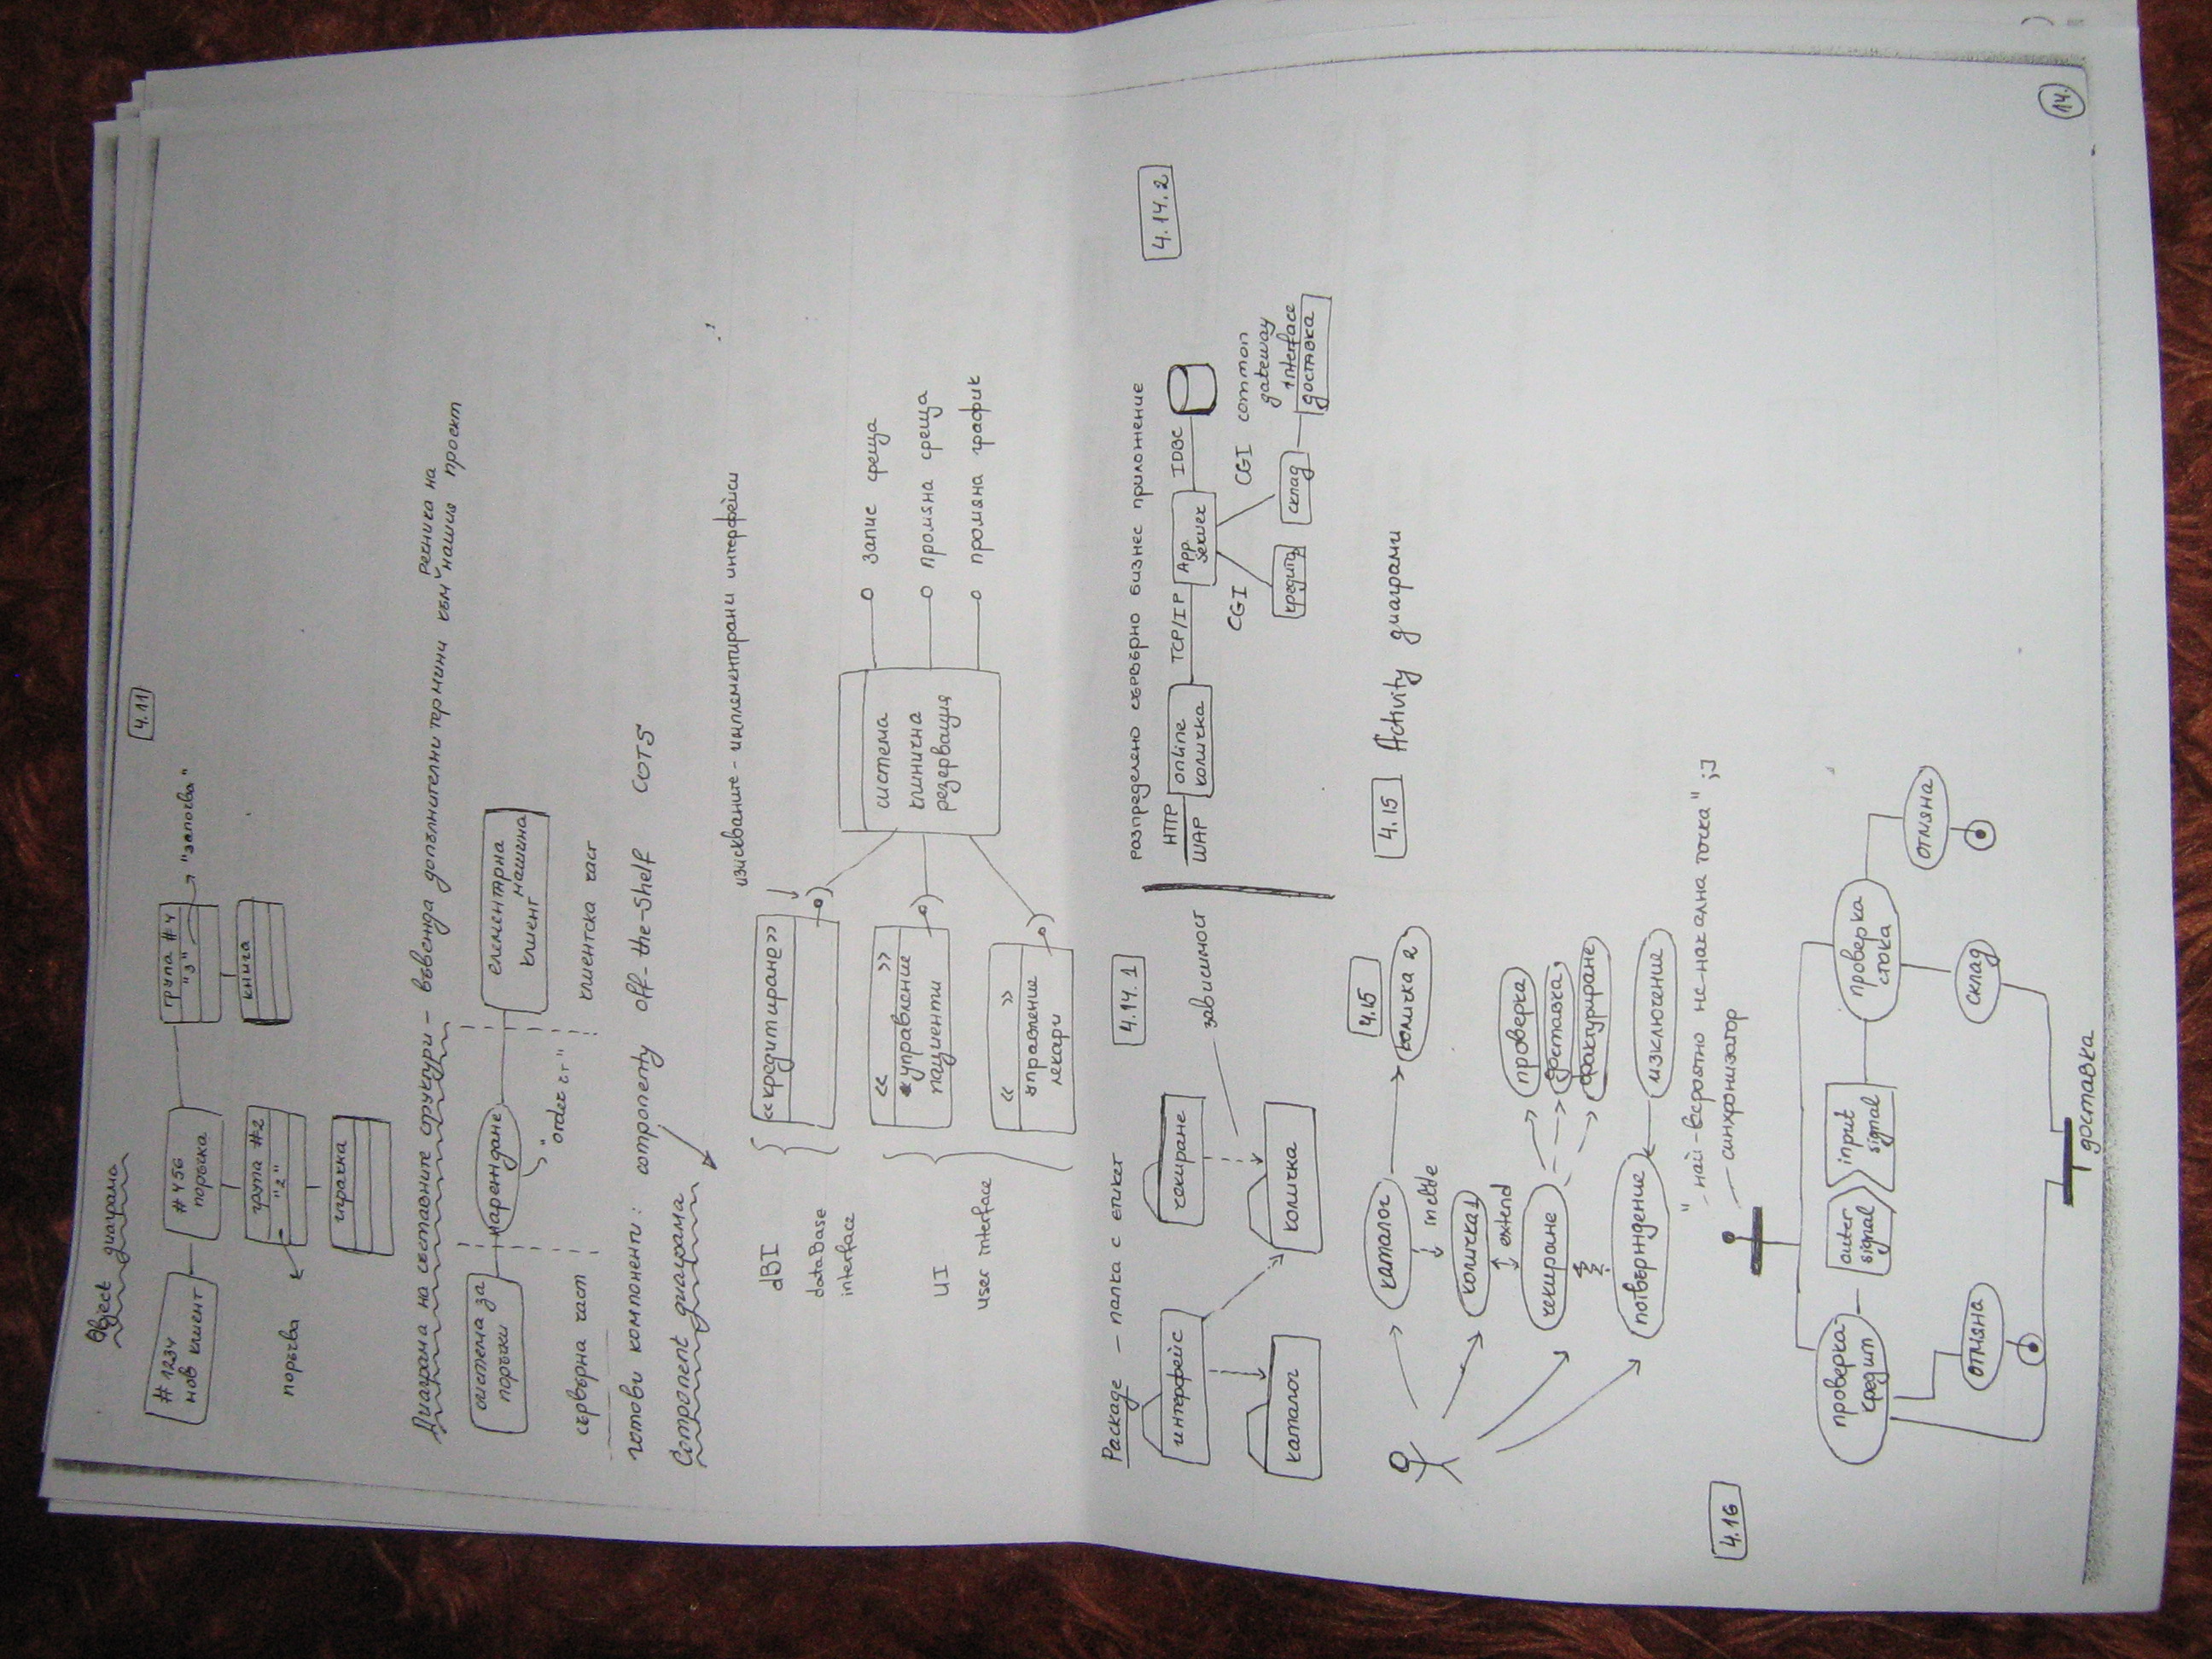 Object диаграма
4.11
#1234
нов клиент
#456
поръчка
група #4
"3"
"започва"
книга
поръчва
група #2
"2"
играчка
Диаграма на съставните структури – въвежда допълнителни термини към нашия проект
речника на
система за
поръчки
нареждане
"order ст"
електрна
клиент
машина
сървърна част
клиентска част
готови компоненти: componenty off-the-shelf COTS
Component диаграма
изискванит - имплементирани интерфейси
dBI
dataBase
interface
«кредитиране»
UI
user interface
« »
управление
пациенти
« »
управление
лекари
система
клинична
резервация
запис среща
промяна среща
промяна график
Package – папка с етикет
4.14.1
интерфейс
чекиране
зависимост
каталог
количка
разпределено сървърно бизнес приложение
4.14.2
HTTP
WAP
online
количка
TCP/IP
App.
server
IDBC
CGI
CGI
common
gateway
interface
кредит
склад
доставка
4.15
4.15 Activity диаграми
каталог
количка 2
include
количка 1
extend
чекиране
проверка
доставка
фактуриране
потвърждение
изключение
4.16
"– най-вероятно не-начална точка" ;]
– синхронизатор
проверка
кредит
outer
signal
input
signal
проверка
стока
отмяна
отмяна
склад
доставка
14.